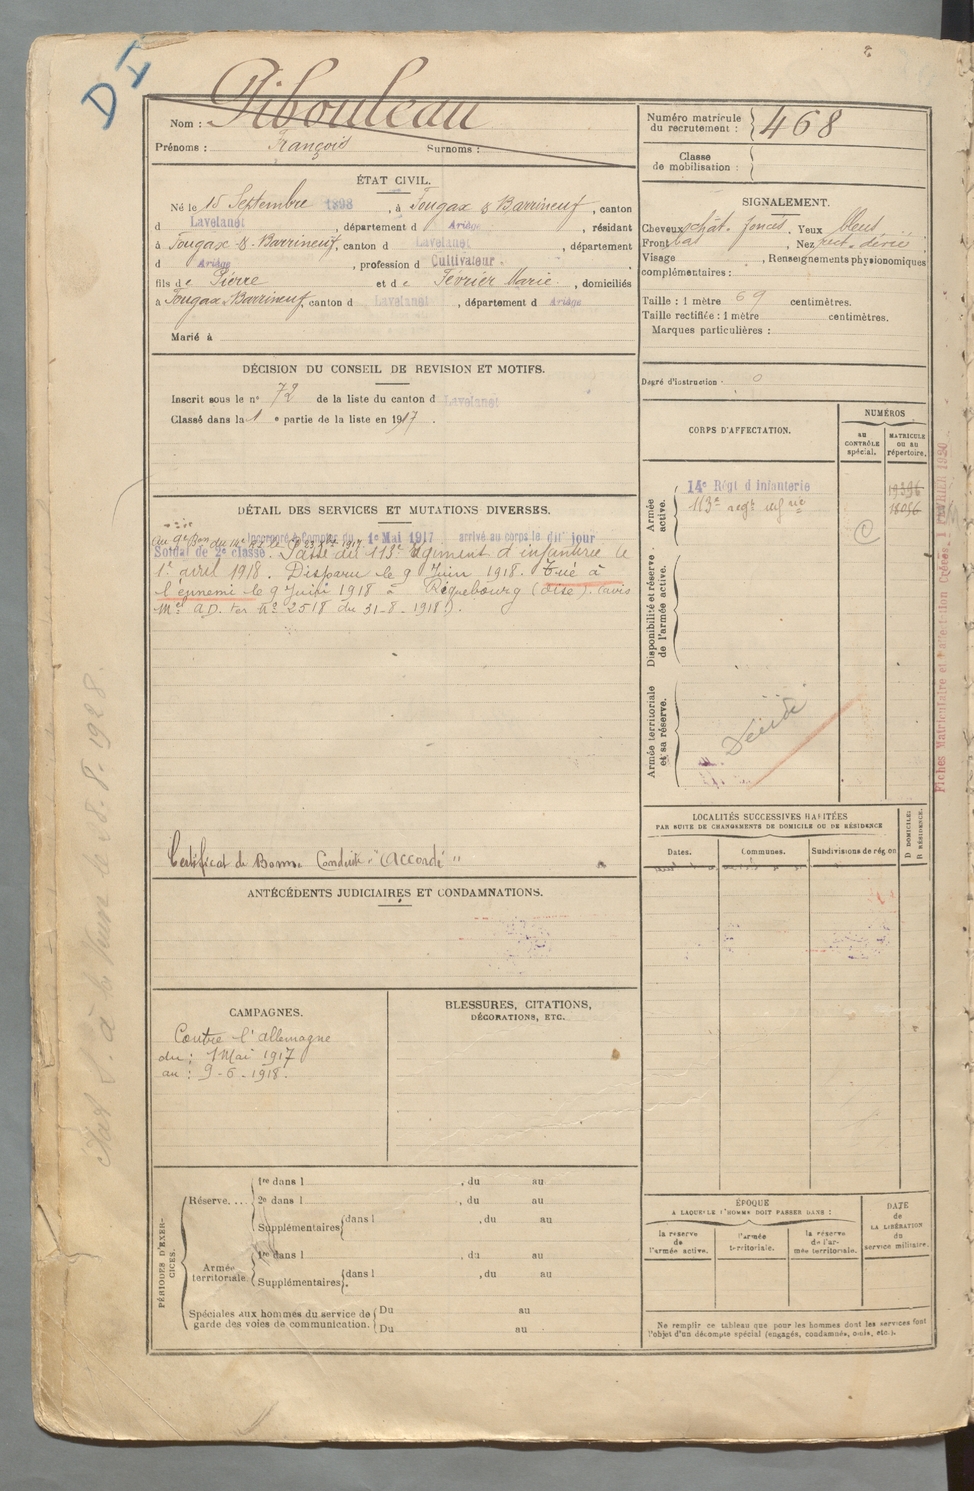 D I
Nom : Pibouleau
Prénoms : François Surnoms :
Numéro matricule du recrutement : 468
Classe de mobilisation :
ÉTAT CIVIL.
Né le 15 Septembre 1898, à Fougax & Barrineuf, canton
d Lavelanet, département d Ariège, résidant
à Fougax-&-Barrineuf, canton d Lavelanet, département
d Ariège, profession d Cultivateur
fils de Pierre et de Février Marie, domiciliés
à Fougax Barrineuf, canton d Lavelanet, département d Ariège
Marié à
SIGNALEMENT.
Cheveux chât. foncés. Yeux bleus
Front bas, Nez rect.
Visage , Renseignements physionomiques
complémentaires :
Taille : 1 mètre 69 centimètres.
Taille rectifiée : 1 mètre centimètres.
Marques particulières :
Degré d'instruction : 0
DÉCISION DU CONSEIL DE REVISION ET MOTIFS.
Inscrit sous le n° 72 de la liste du canton d Lavelanet
Classé dans la 1 e partie de la liste en 1917.
CORPS D'AFFECTATION.
NUMÉROS
AU CONTRÔLE spécial.
MATRICULE ou au répertoire.
Armée active.
14e Régt d Infanterie
113e regt inf rie
C
Disponibilité et réserve de l'armée active.
Armée territoriale et sa réserve.
Décédé
DÉTAIL DES SERVICES ET MUTATIONS DIVERSES.
Incorporé à Compter du 1e Mai 1917 arrivé au corps le dit jour
Soldat de 2e classe. Passé au 113e Régiment d'infanterie le
1er avril 1918. Disparu le 9 Juin 1918. Tué à
l'ennemi le 9 Juin 1918 à Riquebourg (Oise). (avis
Mel AD. ter No 2518 du 31-8-1918).
Certificat de Bonne Conduite "Accordé"
ANTÉCÉDENTS JUDICIAIRES ET CONDAMNATIONS.
LOCALITÉS SUCCESSIVES HABITÉES
PAR SUITE DE CHANGEMENTS DE DOMICILE OU DE RÉSIDENCE
Dates. Communes. Subdivisions de région
D DOMICILE.
R RÉSIDENCE.
CAMPAGNES.
Contre l'allemagne
du : 1 Mai 1917
au : 9-6-1918.
BLESSURES, CITATIONS,
DÉCORATIONS, ETC.
PÉRIODES D'EXERCICES.
Réserve....
1re dans l , du au
2e dans l , du au
Supplémentaires dans l , du au
Armée territoriale.
1re dans l , du au
Supplémentaires dans l , du au
Spéciales aux hommes du service de garde des voies de communication.
Du au
Du au
ÉPOQUE
A LAQUELLE L'HOMME DOIT PASSER DANS :
la réserve de l'armée active.
l'armée territoriale.
la réserve de l'armée territoriale.
DATE de LA LIBÉRATION du service militaire.
Ne remplir ce tableau que pour les hommes dont les services font
l'objet d'un décompte spécial (engagés, condamnés, omis, etc.).
Fiches Matriculaire et d'affectation Créées 1 FÉVRIER 1920